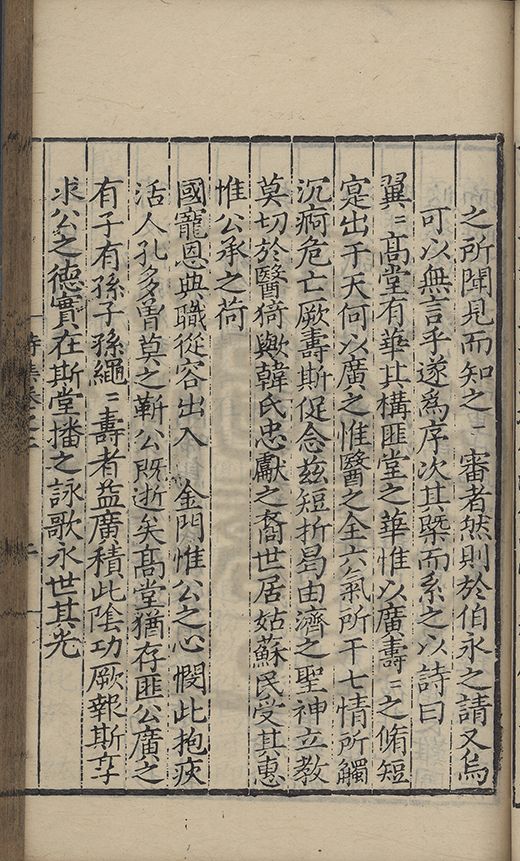 之所聞見而知之〻審者然則於伯永之請又烏
可以無言乎遂為序次其槩而系之以詩曰
翼〻髙堂有華其構匪堂之華惟以廣壽〻之脩短
寔出于天何以廣之惟醫之全六氣所干七情所觸
沉痾危亡厥壽斯促念兹短折曷由濟之聖神立教
莫切於醫猗歟韓氏忠獻之裔世居姑蘇民受其惠
惟公承之荷
國寵恩典職從容出入　金門惟公之心憫此抱疾
活人孔多胷莫之靳公既逝矣髙堂猶存匪公廣之
有子有孫子孫繩〻壽者益廣積此陰功厥報斯享
求公之德實在斯堂播之詠歌永世其光